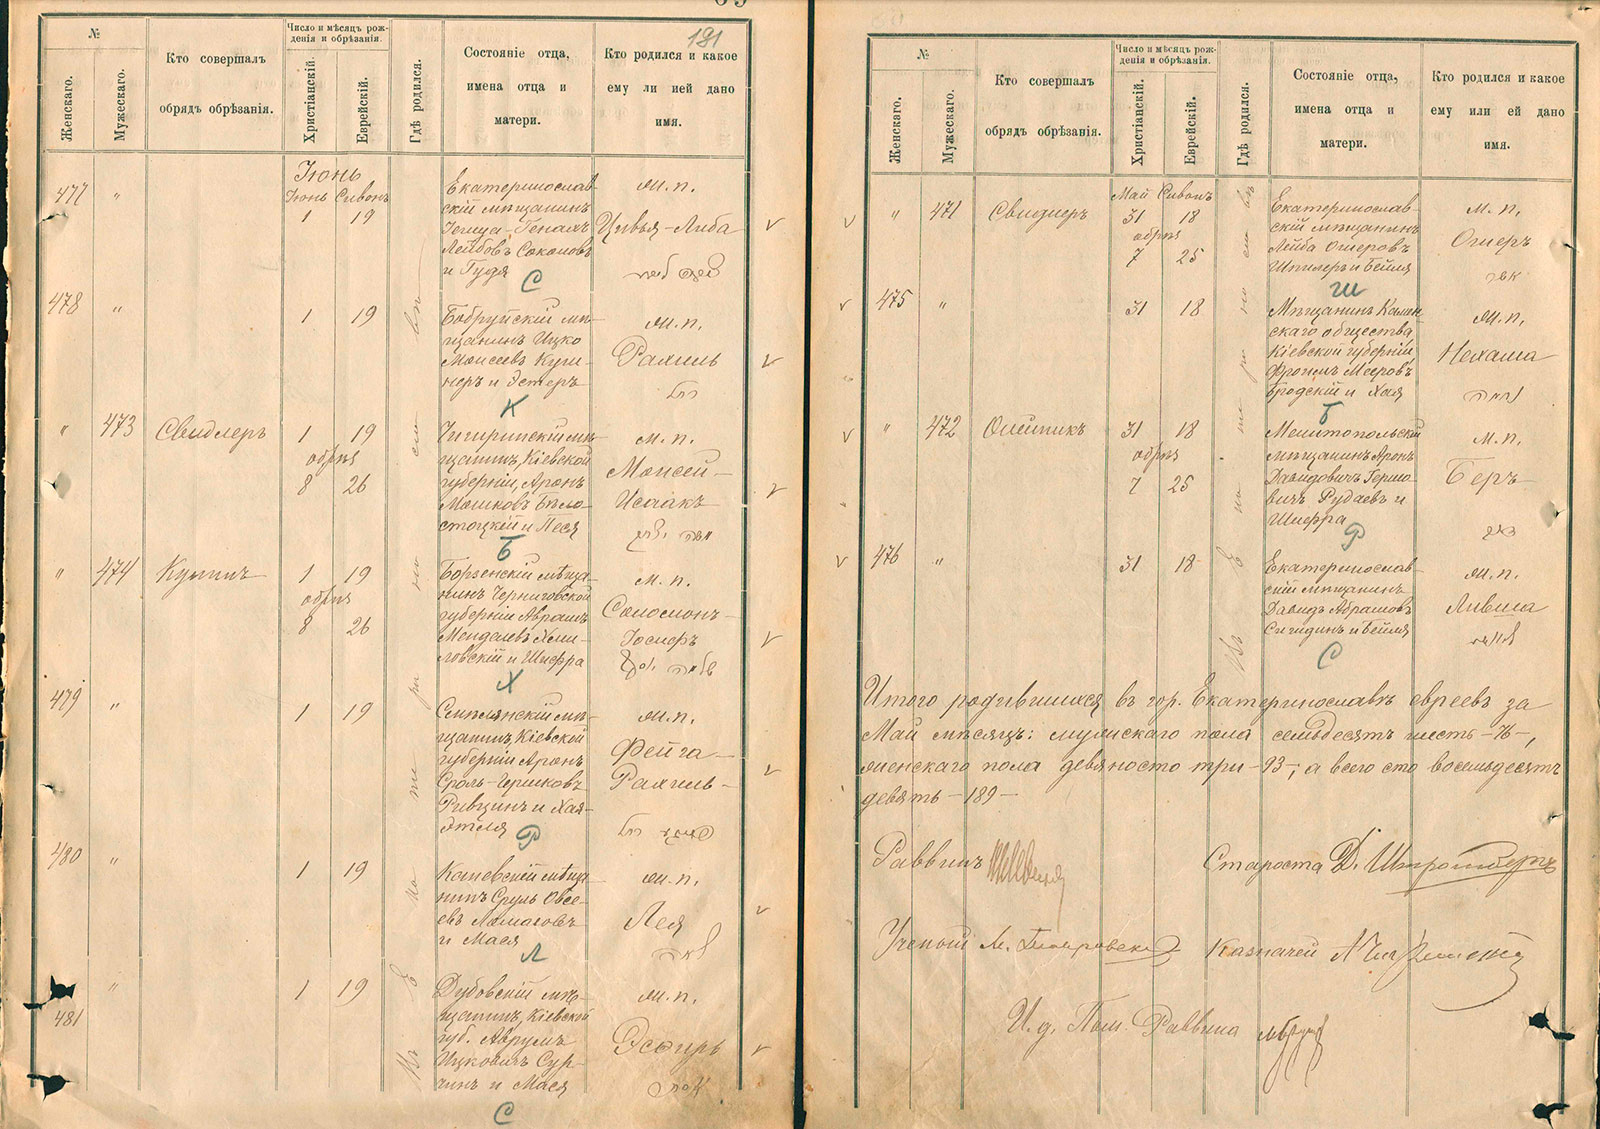 191
№
Женскаго.
Мужескаго.
Кто совершалъ
обрядъ обрѣзанія.
Число и мѣсяцъ рож-
денія и обрѣзанія.
Христіанскій.
Еврейскій.
Гдѣ родился.
Состояніе отца,
имена отца и
матери.
Кто родился и какое
ему ли ией дано
имя.
Іюнь
Іюнь Сивонъ
477 " 1 19
Екатеринослав-
скій мѣщанинъ
Лейбовъ Соколовъ
и Гудя
С
ж. п.
Цивья-Либа
478 " 1 19
Бобруйскій мѣ-
щанинъ Ицко
Моисеевъ Куш-
неръ и Эстеръ
К
ж. п.
Рахиль
" 473 Свидлеръ 1 19
обрѣз
8 26
Чигиринскій мѣ-
щанинъ, Кіевской
губерніи, Аронъ
Мошковъ Бѣло-
стоцкій и Песя
Б
м. п.
Моисей-
Исаакъ
משה יצחק
" 474 Кунинъ 1 19
обрѣз
8 26
Борзенскій мѣща-
нинъ Черниговской
губерніи Абрамъ
Менделевъ Хми-
ловскій и Шифра
Х
м. п.
Соломонъ-
Іосифъ
שלמה יוסף
479 " 1 19
Смѣлянскій мѣ-
щанинъ, Кіевской
губерніи Аронъ
Сроль-Гершковъ
Ривцинъ и Хая-
Этля
Р
ж. п.
Фейга-
Рахиль-
480 " 1 19
Каневскій мѣща-
нинъ Сруль Овсе-
евъ Ламаговъ
и Мася
Л
ж. п.
Лея
לאה
481 " 1 19
Дубовскій мѣ-
щанинъ, Кіевской
губ. Аврумъ
Ицковичъ Сур-
чинъ и Мася
С
ж. п.
Эсфирь
אסתר
Въ Екатеринославѣ
№
Женскаго.
Мужескаго.
Кто совершалъ
обрядъ обрѣзанія.
Число и мѣсяцъ рож-
денія и обрѣзанія.
Христіанскій.
Еврейскій.
Гдѣ родился.
Состояніе отца,
имена отца и
матери.
Кто родился и какое
ему или ей дано
имя.
Май Сивонъ
" 471 Свидлеръ 31 18
обрѣз
7 25
Екатеринослав-
скій мѣщанинъ
Лейба Ошеровъ
Шпилеръ и Бейля
Ш
м. п.
Ошеръ
אשר
475 " 31 18
Мѣщанинъ Камен-
скаго общества
Кіевской губерніи,
Фроимъ Мееровъ
Бродскій и Хая
Б
ж. п.
Нехама
נחמה
" 472 Олейникъ 31 18
обрѣз
7 25
Мелитопольскій
мѣщанинъ Аронъ
Давидовичъ Герш-
вичъ Рудаевъ и
Шифра
Р
м. п.
Беръ
476 " 31 18
Екатеринослав-
скій мѣщанинъ
Давидъ Абрамовъ
Сигидинъ и Бейля
С
ж. п.
Въ Екатеринославѣ
Итого родившихся въ гор. Екатеринославѣ евреевъ за
Май мѣсяцъ: мужскаго пола семьдесятъ шесть -76-,
женскаго пола девяносто три -93-, а всего сто восемьдесятъ
девять -189-
Раввинъ
Староста Д. Штромберъ
Ученый
Казначей
И. д. Пом. Раввина